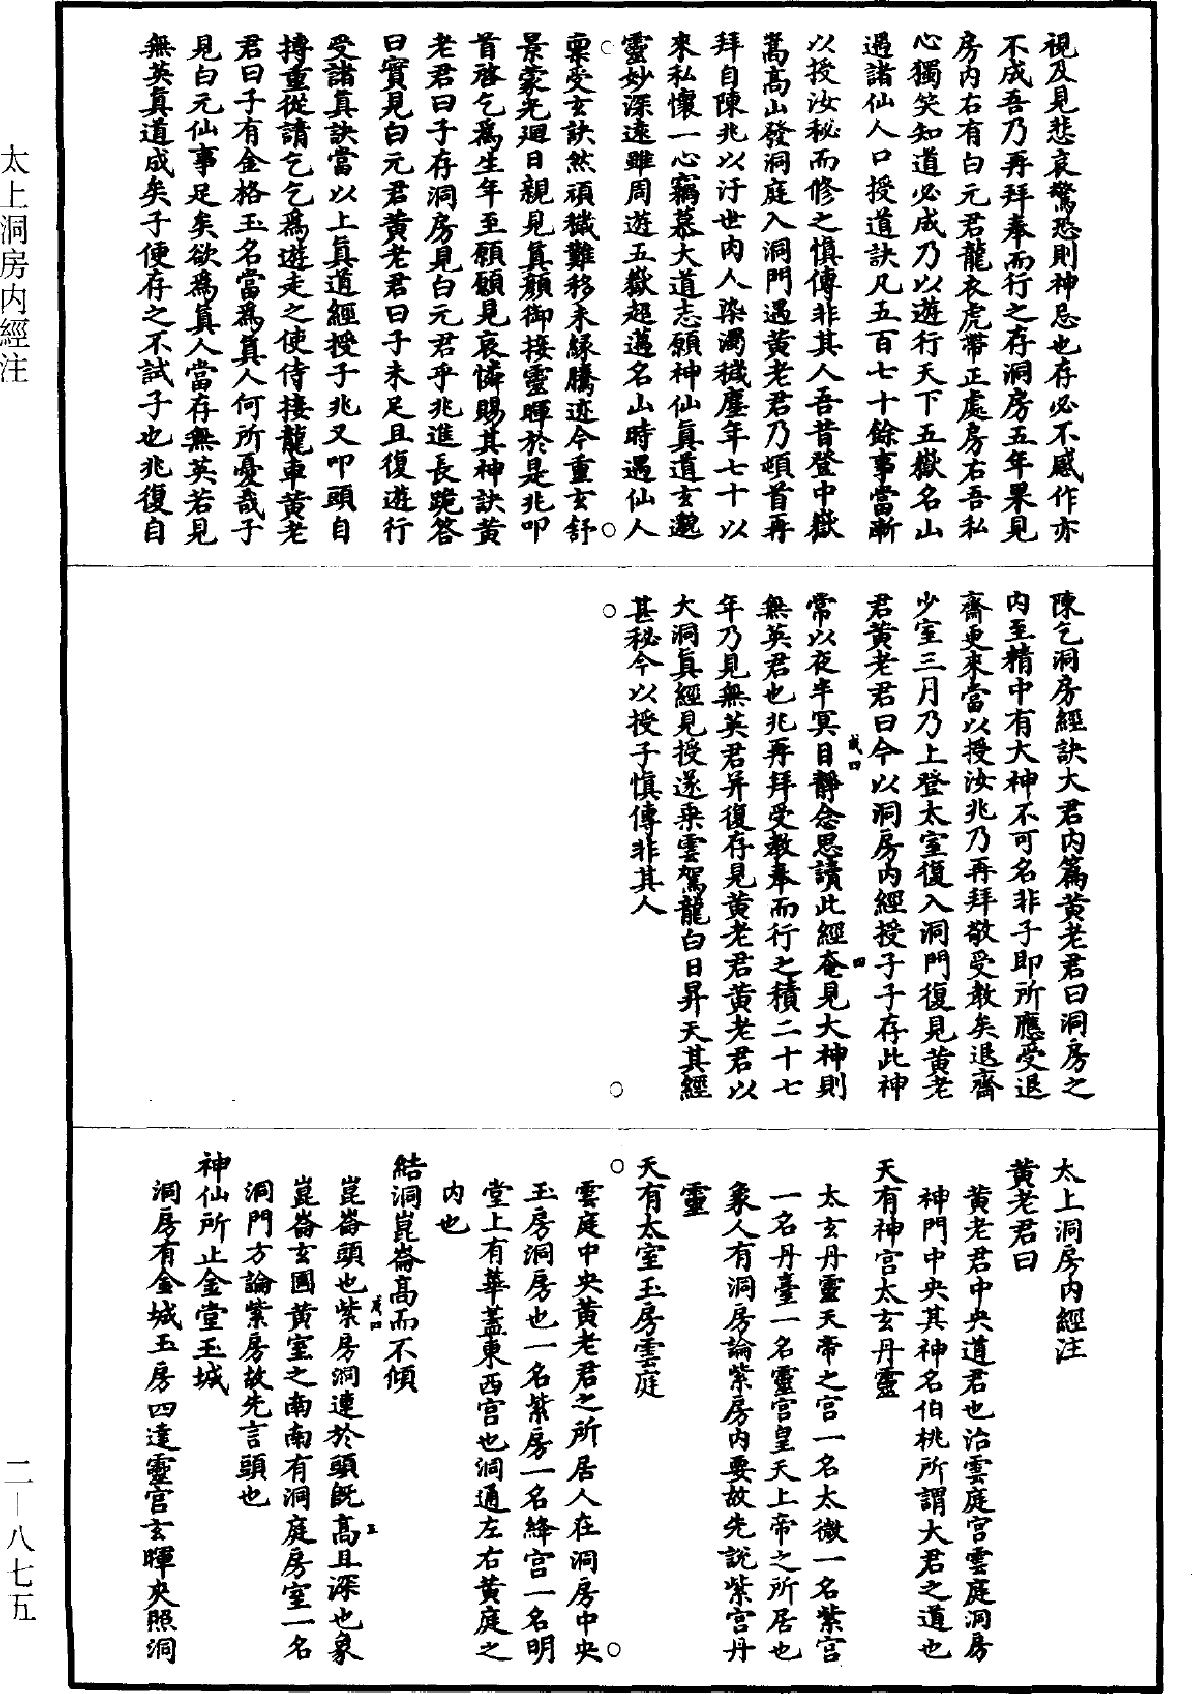 視及見悲哀驚恐則神忌也存必不感作亦
不成吾乃再拜奉而行之存洞房五年果見
房內右有白元君龍衣虎帶正處房右吾私
心獨笑知道必成乃以遊行天下五嶽名山
過諸仙人口授道訣凡五百七十餘事當斬
以授汝秘而修之慎傳非其人吾昔登中嶽
嵩高山發洞庭入洞門遇黃老君乃頓首再
拜自陳兆以汙世肉人染濁穢塵年七十以
來私懷一心竊慕大道志願神仙真道玄邈
靈妙深遠雖周遊五嶽超邁名山時遇仙人
稟受玄訣然頑穢難移未緣騰迹今重玄舒
景蒙光廻日親見真顏御接靈暉於是兆叩
首啓乞為生年至願願見哀憐賜其神訣黃
老君曰子存洞房見白元君乎兆進長跪答
曰實見白元君黃老君曰子未足且復遊行
受諸真訣當以上真道經授子兆又叩頭自
搏重從請乞乞為遊走之使侍接龍車黃老
君曰子有金格玉名當為真人何所憂哉子
見白元仙事足矣欲為真人當存無英若見
無英真道成矣子便存之不試子也兆復自
陳乞洞房經訣大君內篇黃老君曰洞房之
內至精中有大神不可名非子即所應受退
齋更來當以授汝兆乃再拜敬受教矣退齋
少室三月乃上登太室復入洞門復見黃老
君黃老君曰今以洞房內經授子子存此神
常以夜半冥目靜念思請此經奄見大神則
無英君也兆再拜受教奉而行之積二十七
年乃見無英君并復存見黃老君黃老君以
大洞真經見授遂乘雲駕龍白日昇天其經
甚秘今以授子慎傳非其人
太上洞房內經注
黃老君曰
黃老君中央道君也治雲庭宮雲庭洞房
神門中央其神名伯桃所謂大君之道也
天有神宮太玄丹靈
太玄丹靈天帝之宮一名太微一名紫宮
一名丹臺一名靈宮皇天上帝之所居也
象人有洞房論紫房內要故先說紫宮丹
靈
天有太室玉房雲庭
雲庭中央黃老君之所居人在洞房中央
玉房洞房也一名紫房一名絳宮一名明
堂上有華蓋東西宮也洞通左右黃庭之
內也
結洞崑崙高而不傾
崑崙頭也紫房洞連於頭既高且深也象
崑崙玄圃黃室之南南有洞庭房室一名
洞門方論紫房故先言頭也
神仙所止金堂玉城
洞房有金城玉房四達靈宮玄暉夾照洞
太上洞房內經注
二—八七五